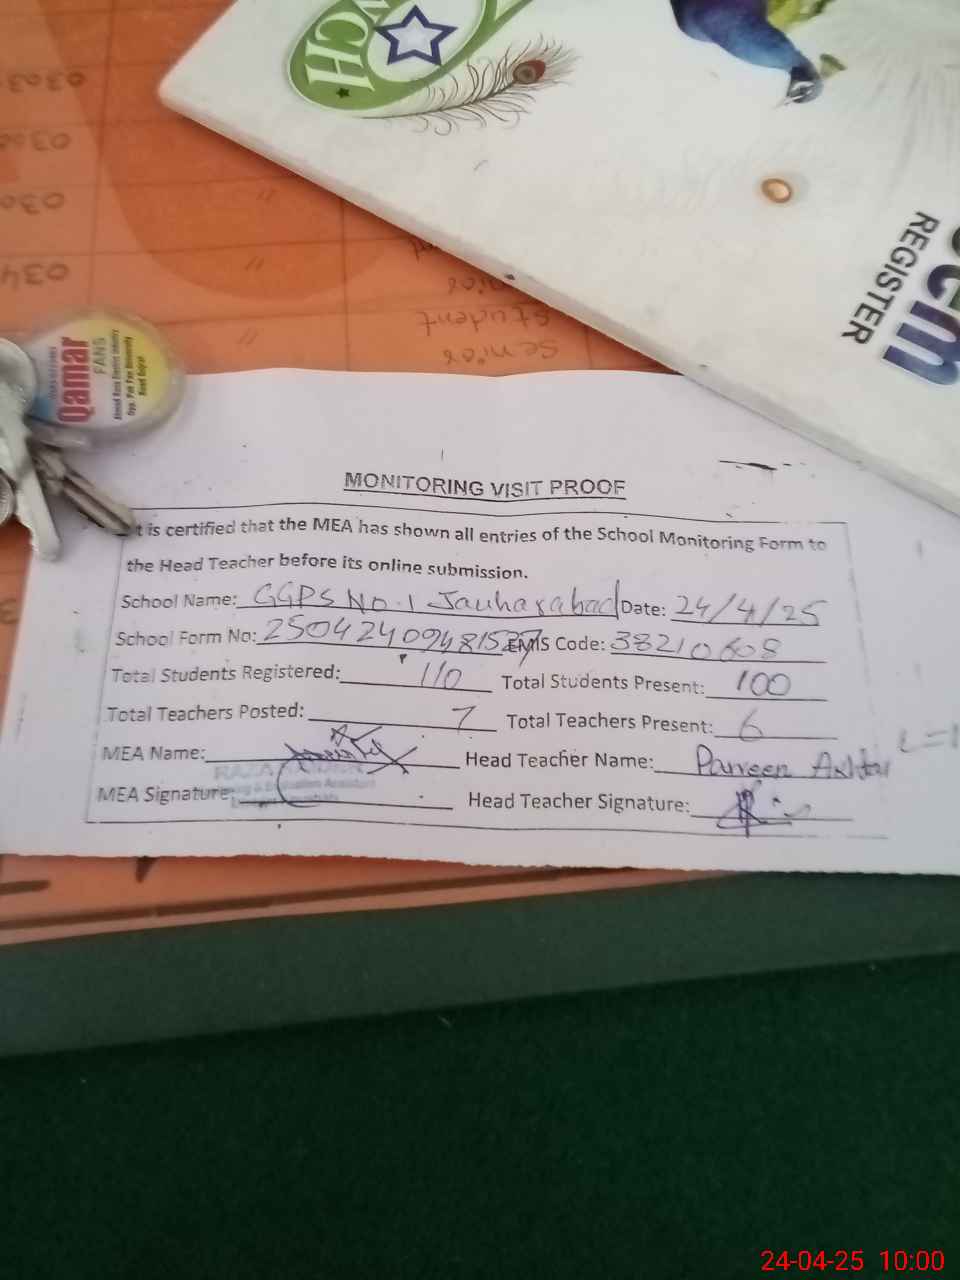 CH
REGISTER
Senior
Student
Qamar
FANS
MONITORING VISIT PROOF
t is certified that the MEA has shown all entries of the School Monitoring Form to
the Head Teacher before its online submission.
School Name: GGPS No.1 Jauharabad Date: 24/4/25
School Form No: EMIS Code: 38210608
Total Students Registered: 110 Total Students Present: 100
Total Teachers Posted: 7 Total Teachers Present: 6
L=1
MEA Name: Head Teacher Name: Parveen Akhtar
MEA Signature: Head Teacher Signature:
24-04-25 10:00